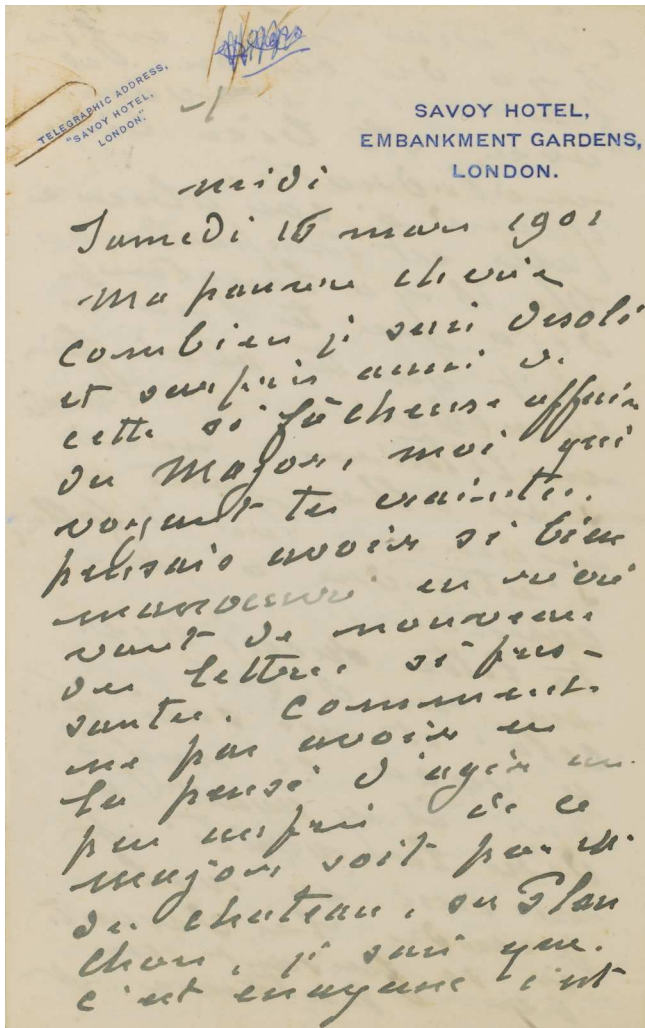 TELEGRAPHIC ADDRESS,
"SAVOY HOTEL,
LONDON."
SAVOY HOTEL,
EMBANKMENT GARDENS,
LONDON.
midi
Samedi 16 mars 1901
Ma pauvre cherie
combien je suis desolé
et surpris aussi de
cette si fâcheuse affaire
du Major, moi qui
voyant tes craintes
pensais avoir si bien
manoeuvré en ecri
vant de nouveau
des lettres si pres-
santes. Comment
ne pas avoir eu
la pensé d'agir un
peu auprès de ce
major soit par M.
du chateau, ou Plan
chon, je sais que
c'est c'est